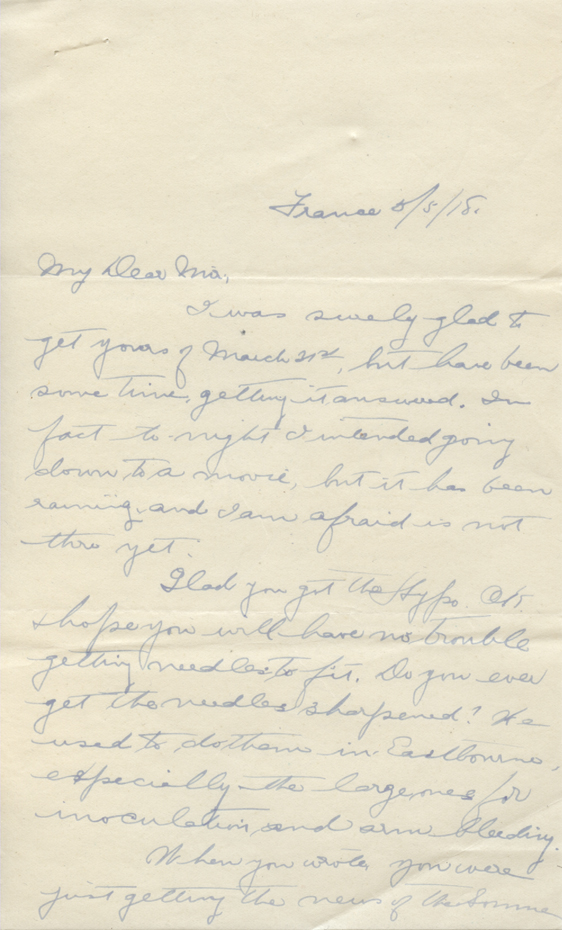 France 5/5/18.
My Dear Ma,
I was surely glad to
get yours of March 21st, but have been
some time, getting it answered. In
fact to-night I intended going
down to a movie, but it has been
raining and I am afraid is not
thro yet.
Glad you got the Hypo. O.K.
& hope you will have no trouble
getting needles to fit. Do you ever
get the needles sharpened? We
used to do them in Eastbourne,
especially the large ones for
inoculation, and arm bleeding.
When you wrote, you were
just getting the news of the Somme